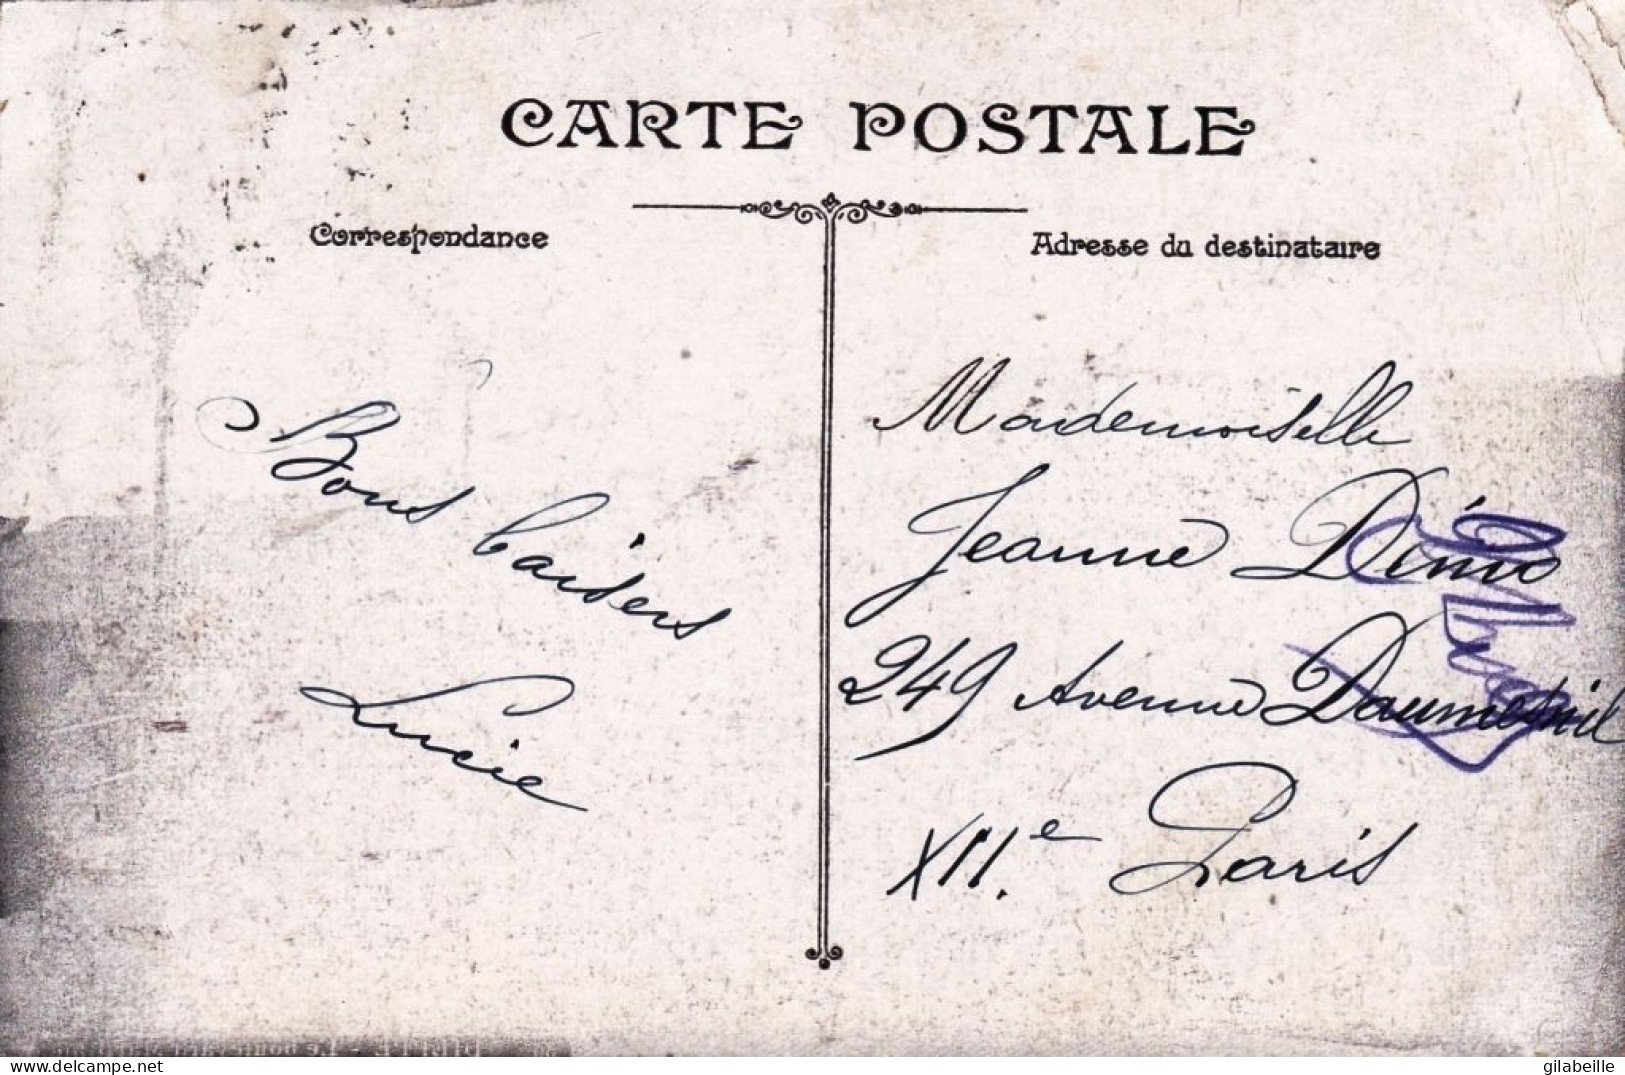 CARTE POSTALE
Correspondance
Adresse du destinataire
Bons baisers
Lucie
Mademoiselle
Jeanne
249 Avenue Daumesnil
XII.e Paris
delcampe.net
gilabeille